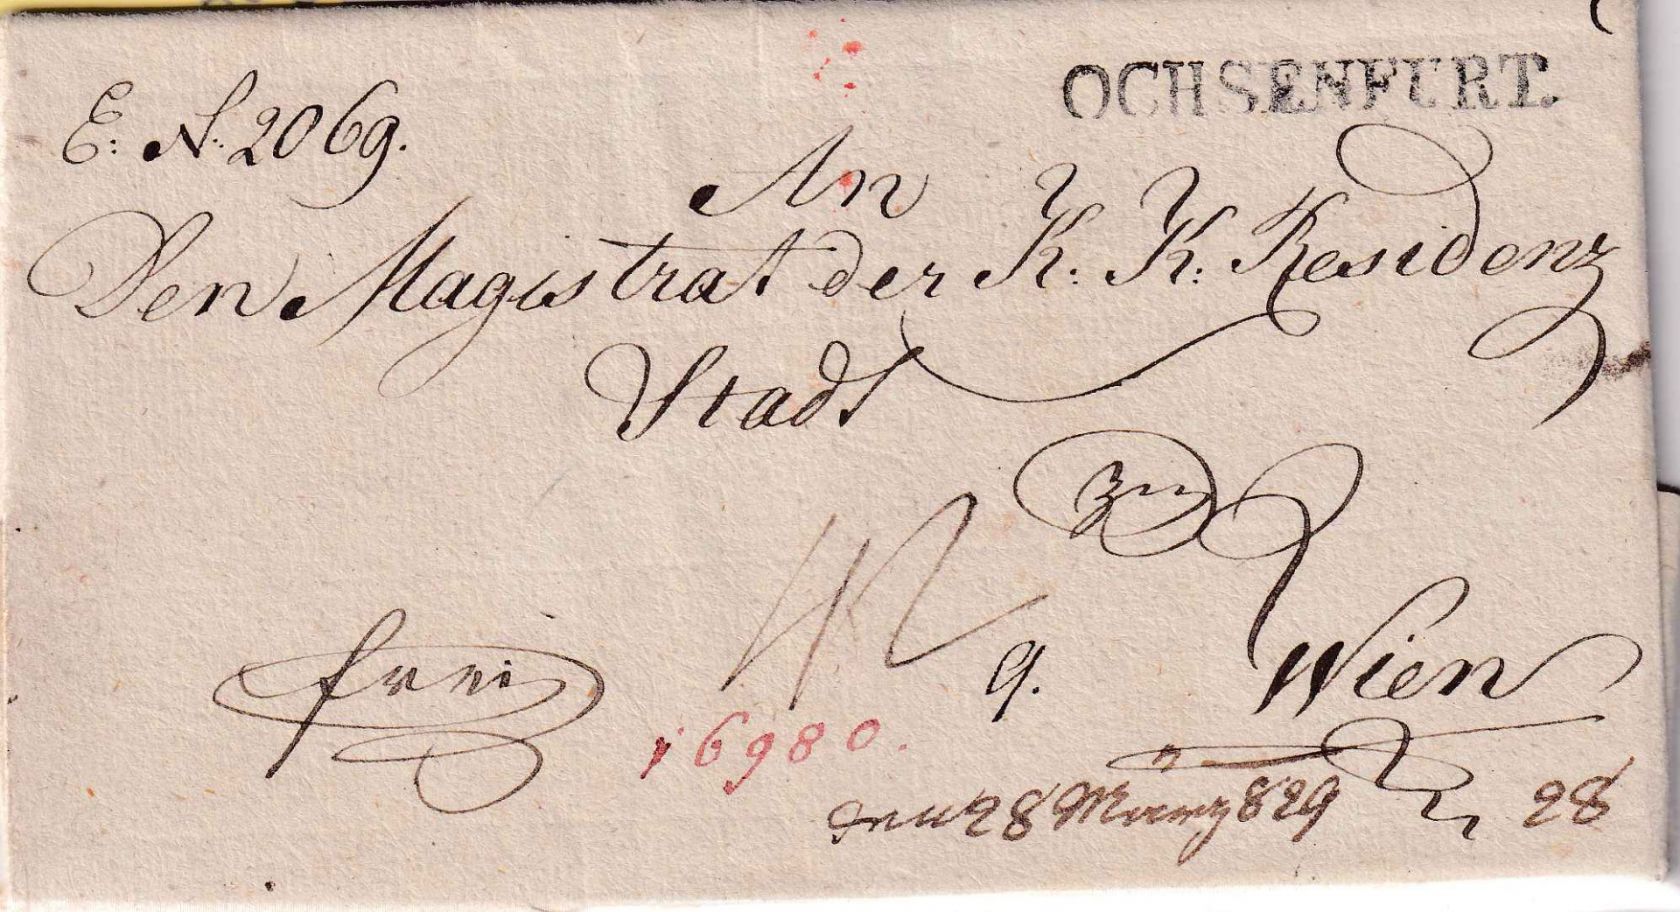 OCHSENFURT.
E: N: 2069.
An
Den Magistrat der K: K: Residenz
Stadt
zu
frei
9.
Wien
16980.
den 28 März 829
28